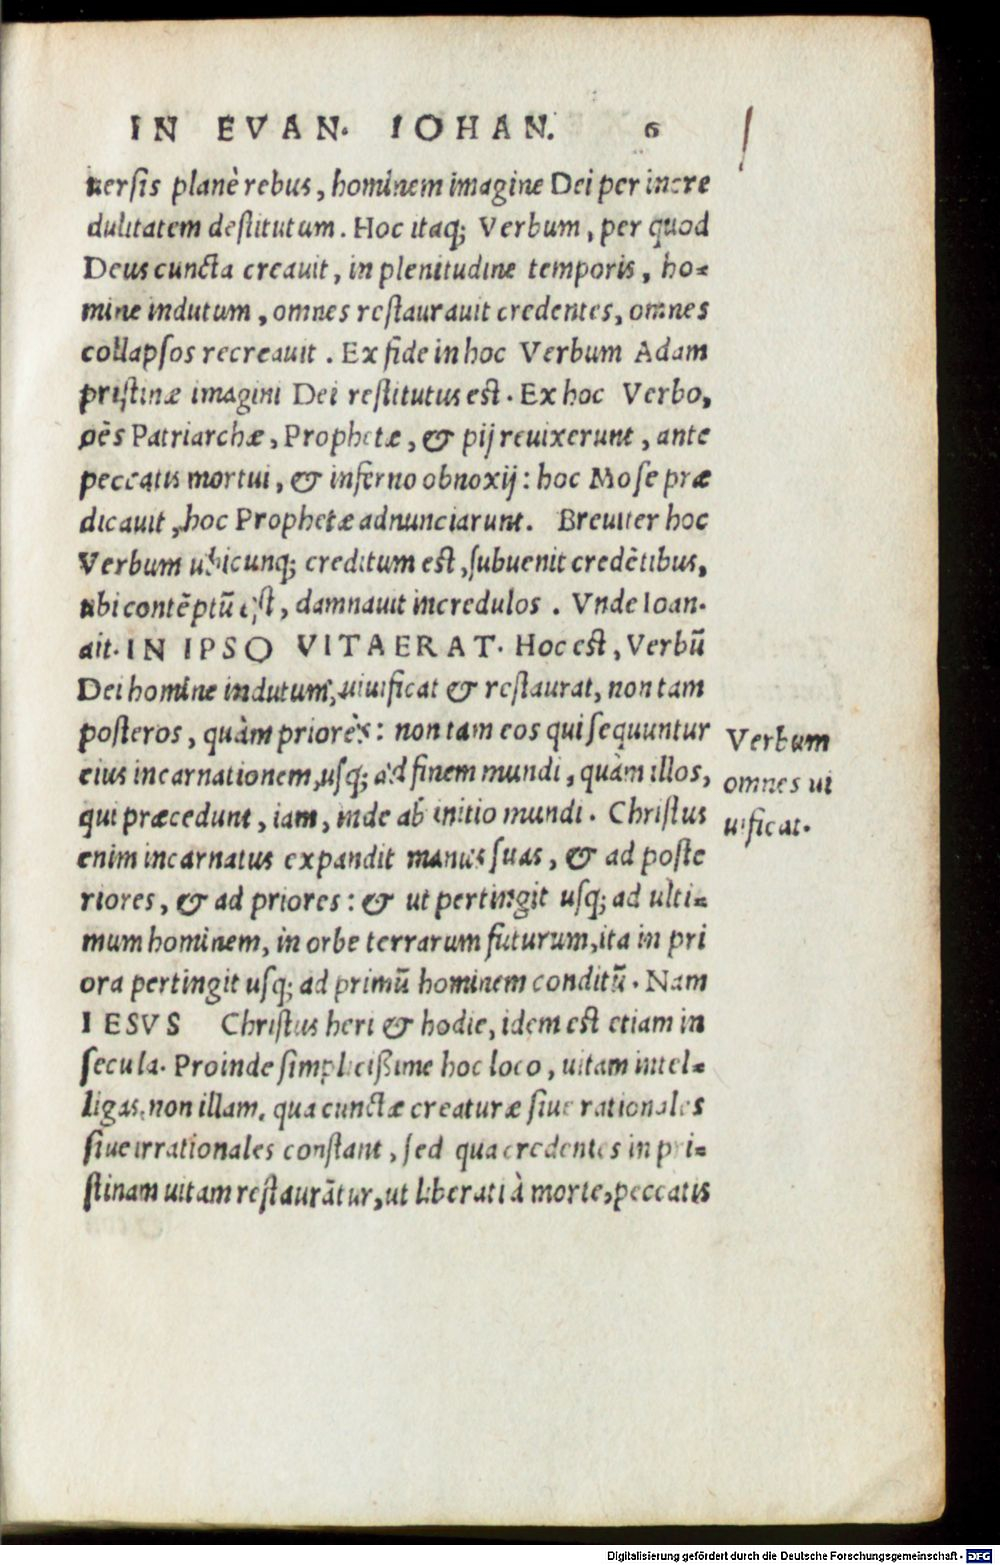 IN EVAN. IOHAN. 6
uersis planè rebus, hominem imagine Dei per incre
dulitatem destitutum. Hoc itaq; Verbum, per quod
Deus cuncta creauit, in plenitudine temporis, ho=
mine indutum, omnes restaurauit credentes, omnes
collapsos recreauit. Ex fide in hoc Verbum Adam
pristinæ imagini Dei restitutus est. Ex hoc Verbo,
oẽs Patriarchæ, Prophetæ, & pij reuixerunt, ante
peccatis mortui, & inferno obnoxij: hoc Mose præ
dicauit, hoc Prophetæ adnunciarunt. Breuiter hoc
Verbum ubicunq; creditum est, subuenit credẽtibus,
ubi contẽptũ est, damnauit incredulos. Vnde Ioan.
ait. IN IPSO VITA ERAT. Hoc est, Verbũ
Dei homine indutum, uiuificat & restaurat, non tam
posteros, quàm priores: non tam eos qui sequuntur
eius incarnationem, usq; ad finem mundi, quàm illos,
qui præcedunt, iam, inde ab initio mundi. Christus
enim incarnatus expandit manus suas, & ad poste
riores, & ad priores: & ut pertingit usq; ad ulti=
mum hominem, in orbe terrarum futurum, ita in pri
ora pertingit usq; ad primũ hominem conditũ. Nam
IESVS Christus heri & hodie, idem est etiam in
secula. Proinde simplicißime hoc loco, uitam intel=
ligas, non illam, qua cunctæ creaturæ siue rationales
siue irrationales constant, sed qua credentes in pri=
stinam uitam restaurãtur, ut liberati à morte, peccatis
Verbum
omnes ui
uificat.
Digitalisierung gefördert durch die Deutsche Forschungsgemeinschaft - DFG